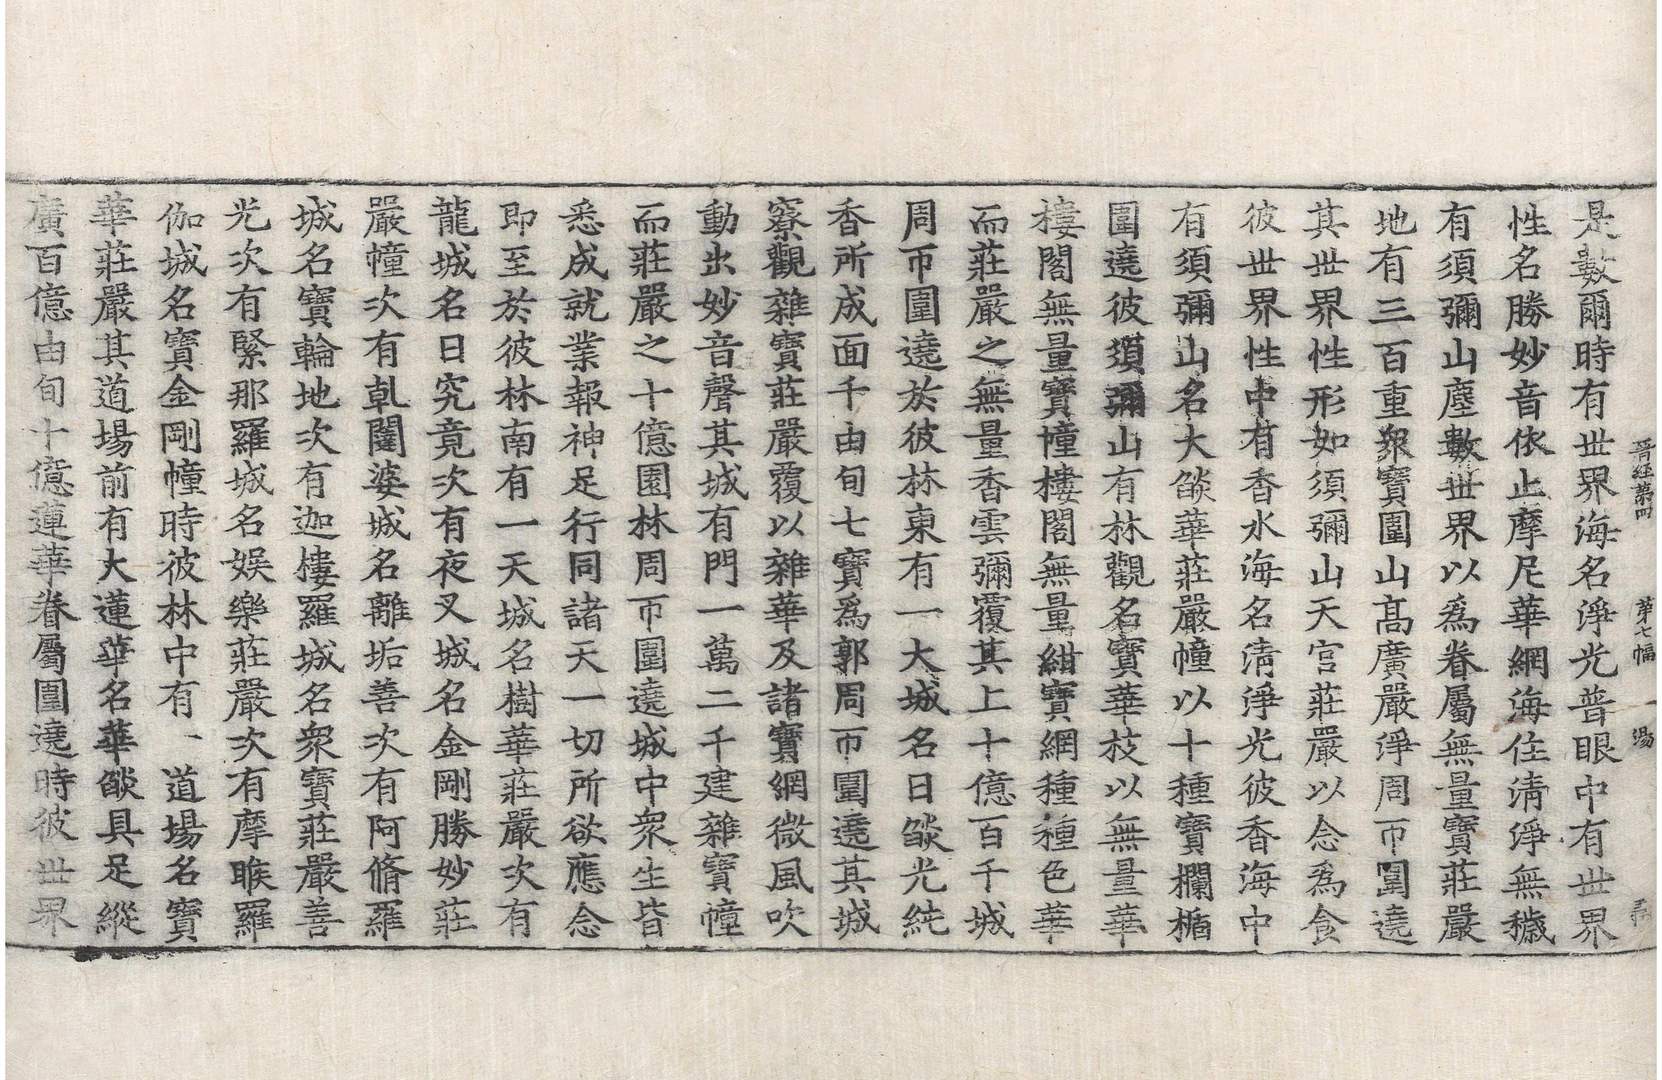 晋經第四 第七幅 一 湯
是數爾時有世界海名淨光普眼中有世界
性名勝妙音依止摩尼華網海住清淨無穢
有須彌山塵數世界以為眷屬無量寶莊嚴
地有三百重衆寶圍山髙廣嚴淨周帀圍遶
其世界性形如須彌山天宫莊嚴以念為食
彼世界性中有香水海名清淨光彼香海中
有須彌山名大燄華莊嚴幢以十種寶欄楯
圍遶彼湏彌山有林觀名寶華枝以無量華
樓閣無量寶幢樓閣無量紺寶網種種色華
而莊嚴之無量香雲彌覆其上十億百千城
周帀圍遶於彼林東有一大城名日燄光純
香所成面千由旬七寶為郭周帀圍遶其城
寮觀雜寶莊嚴覆以雜華及諸寶網微風吹
動出妙音聲其城有門一萬二千建雜寶幢
而莊嚴之十億園林周帀圍遶城中衆生皆
悉成就業報神足行同諸天一切所欲應念
即至於彼林南有一天城名樹華莊嚴次有
龍城名日究竟次有夜叉城名金剛勝妙莊
嚴幢次有乹闥婆城名離垢善次有阿脩羅
城名寶輪地次有迦樓羅城名衆寶莊嚴善
光次有緊那羅城名娛樂莊嚴次有摩睺羅
伽城名寶金剛幢時彼林中有一道場名寶
華莊嚴其道場前有大蓮華名華燄具足縱
廣百億由旬十億蓮華眷屬圍遶時彼世界